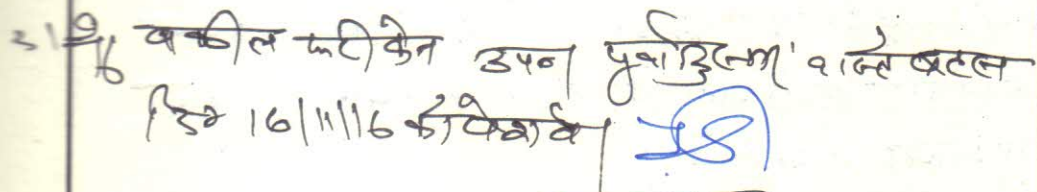 3/9/16 वकील फरीकैन उप० पूर्वानुसार वास्ते बहस
दि० 16/11/16 को पेश हो।